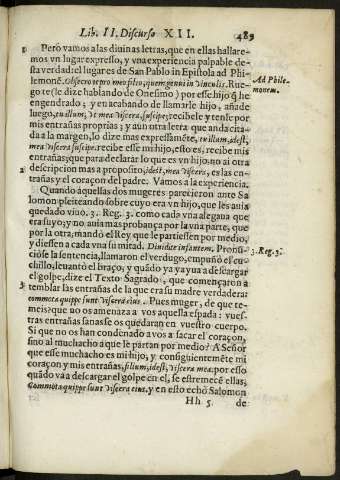 Lib. II. Discurso XII. 489
Pero vamos a las diuinas letras, que en ellas hallare-
mos vn lugar expresso, y vna experiencia palpable de
sta verdad: el lugar es de San Pablo in Epistola ad Phi-
lemonē. Obsecro te pro meo filio, quem genui in vinculis. Rue-
gote (le dize hablando de Onesimo) por esse hijo q̃ he
engendrado; y en acabando de llamarle hijo, añade
luego, tu illum, vt mea viscera, suscipe; recibele y tenle por
mis entrañas proprias; y aũn otra letra que anda cita-
da a la margen, lo dize mas expressamēte, tu illum, id est,
mea viscera suscipe. recibe esse mi hijo, esto es, recibe mis
entrañas; que para declarar lo que es vn hijo, no ai otra
descripcion mas a proposito, id est, mea viscera, es las en-
trañas y el coraçon del padre. Vamos a la experiencia.
Quando aquellas dos mugeres parecieron ante Sa
lomon pleiteando sobre cuyo era vn hijo, que les auia
quedado viuo. 3. Reg. 3. como cada vna alegaua que
era suyo; y no auia mas prouança por la vna parte, que
por la otra, mandò el Rey que le partiessen por medio,
y diessen a cada vna su mitad. Diuidite infantem. Pronũ-
ciòse la sentencia, llamaron el verdugo, empuñò el cu-
chillo, leuantò el braço; y quãdo ya yaua a descargar
el golpe, dize el Texto Sagrado, que començaron a
temblar las entrañas de la que era su madre verdadera:
commota quippe sunt viscera eius. Pues muger, de que te-
meis? que no os amenaza a vos aquella espada: vues-
tras entrañas sanas se os quedaran en vuestro cuerpo.
Si que no os han condenado a vos a sacar el coraçon,
sino al muchacho a que le partan por medio? A Señor
que esse muchacho es mi hijo, y consiguientemēte mi
coraçon y mis entrañas, filium, id est, viscera mea: por esso
quãdo va a descargar el golpe en el, se estremecē ellas,
Commota quippe sunt viscera eius, y en esto echò Salomon
Hh 5. de
Ad Phile-
monem.
3. Reg. 3.